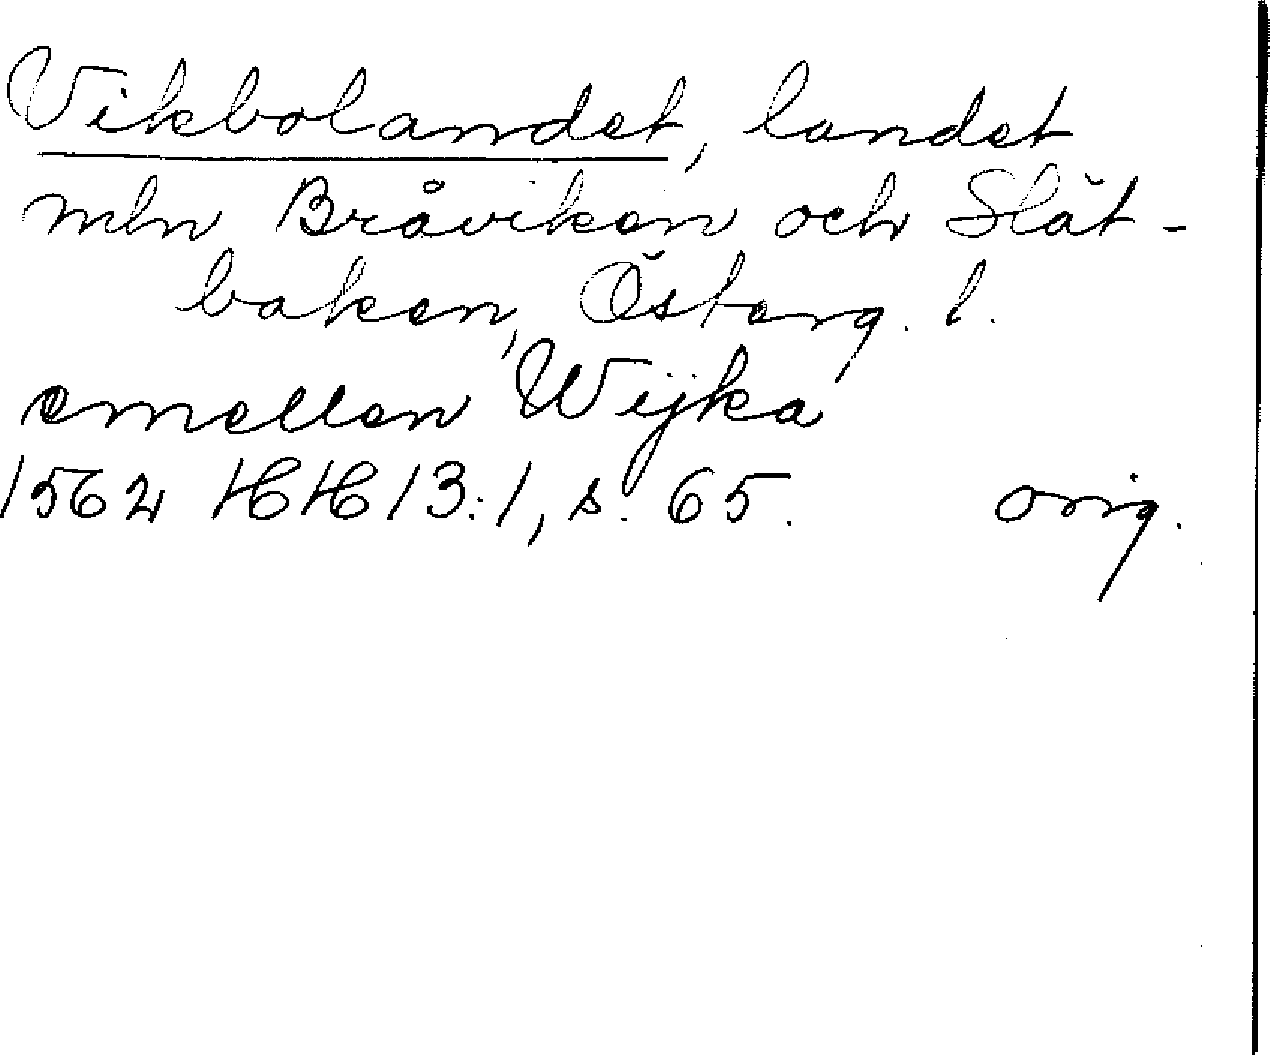 Vikbolandet, landet
mln Bråviken och Slät-
baken, Österg. l.
emellen Wijka
1562 HH 13:1, s. 65. orig.